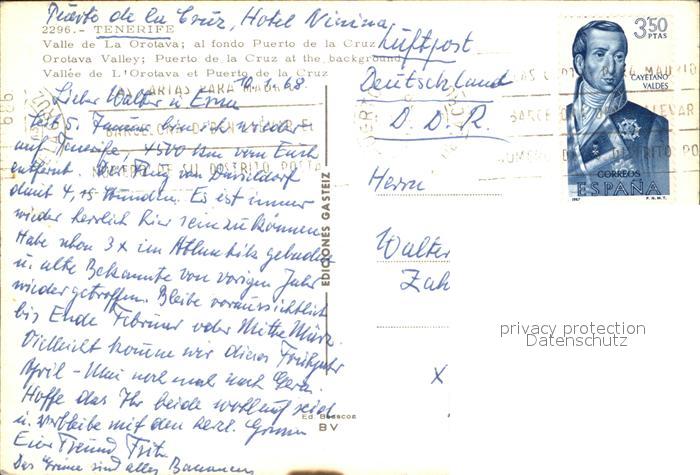 Puerto de la Cruz, Hotel Ninina,
2296.- TENERIFE
Valle de La Orotava; al fondo Puerto de la Cruz
Orotava Valley; Puerto de la Cruz at the background
Vallée de L'Orotava et Puerto de la Cruz
1968.
Lieber Walter u Erna
Seit 5. Januar bin ich wieder
auf Tenerife, 4500 km vom Euch
entfernt. Der Flug von Düsseldorf
dauert 4,15 Stunden. Es ist immer
wieder herrlich hier sein zu können
Habe schon 3x im Atlantik gebadet
u. alte Bekannte von vorigen Jahr
wieder getroffen. Bleibe voraussichtlich
bis Ende Februar oder Mitte März.
Vielleicht komme wir dieses Frühjahr
April - Mai noch mal nach Gera.
Hoffe das Ihr beide wohlauf seid
u. verbleibe mit den herzl. Grüssen
Euer Freund Fritz
Das Grüne sind alles Bananen
EDICIONES GASTEIZ
Ed.
BV
Luftpost
Deutschland
D. D. R.
Herrn
Walter
Zah
X
3'50
PTAS
CAYETANO
VALDES
CORREOS
ESPAÑA
1967
F.N.M.T.
MADRID
BARCELONA
NUMERO DE SU DISTRITO POSTAL
privacy protection
Datenschutz